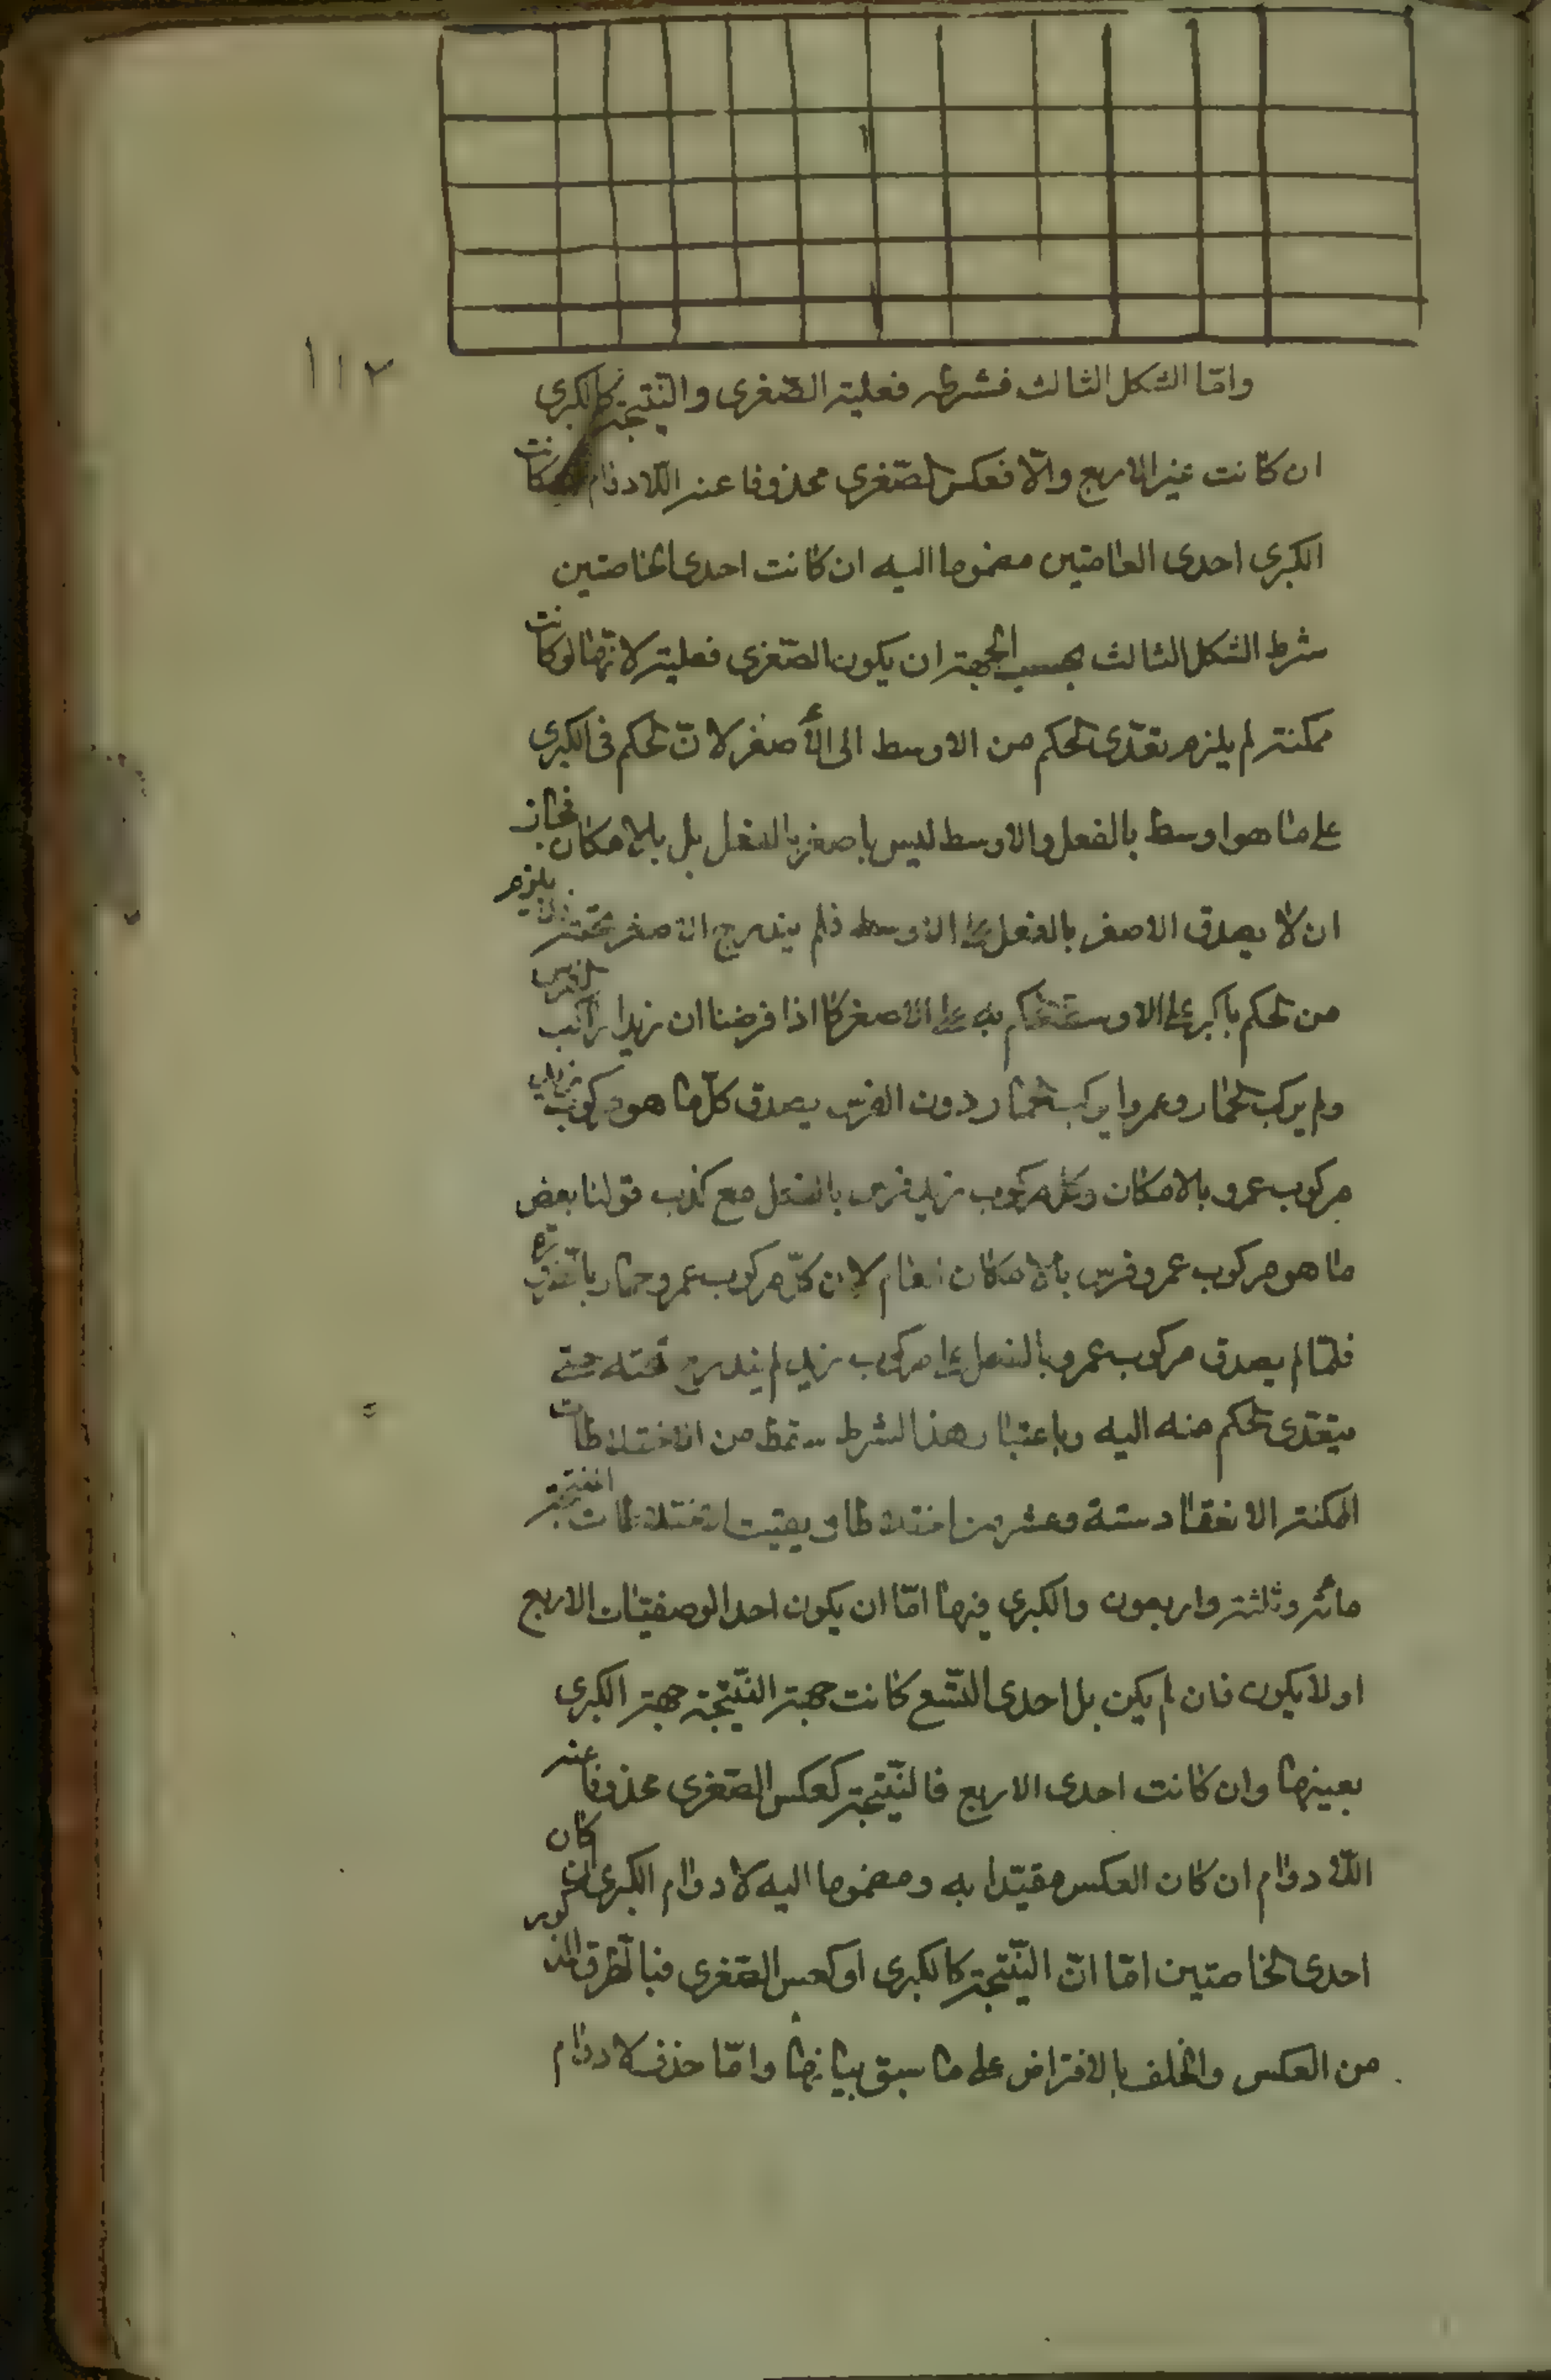 ١١٢
وامّا الشكل الثالث فشرطه فعلية الصّغرى والنّتيجة كالكبرى
ان كانت غير الاربع والّا فعكس الصّغرى محذوفا عنه اللّادوام ان كانت
الكبرى احدى العامتين مضموما اليه ان كانت احدى الخاصتين
شرط الشكل الثالث بحسب الجهة ان يكون الصّغرى فعلية لانّها لو كانت
ممكنة لم يلزم تعدّى الحكم من الاوسط الى الأصغر لانّ الحكم فى الكبرى
على ما هو اوسط بالفعل والاوسط ليس باصغر بالفعل بل بالامكان فجاز
ان لا يصدق الاصغر بالفعل على الاوسط فلم يندرج الاصغر تحته فلا يلزم
من الحكم باكبر على الاوسط الحكم به على الاصغر كما اذا فرضنا ان زيدا راكب الفرس
ولم يركب الحمار وعمروا يركب الحمار دون الفرس يصدق كلّ ما هو مركوب زيد
مركوب عمرو بالامكان وكل مركوب زيد فرس بالفعل مع كذب قولنا بعض
ما هو مركوب عمرو فرس بالامكان العام لان كلّ مركوب عمرو حمار بالضرورة
فلمّا لم يصدق مركوب عمرو بالفعل على مركوب زيد لم يندرج تحته حتى
يتعدّى الحكم منه اليه وباعتبار هذا الشرط سقط من الاختلاطات
الممكنة الانعقاد ستة وعشرون اختلاطا وبقيت الاختلاطات المنتجة
مائة وثلثة واربعون والكبرى فيها امّا ان يكون احد الوصفيّات الاربع
او لا يكون فان لم يكن بل احدى التّسع كانت جهة النّتيجة جهة الكبرى
بعينها وان كانت احدى الاربع فالنّتيجة كعكس الصّغرى محذوفا عنه
اللّا دوام ان كان العكس مقيّدا به ومضموما اليه لا دوام الكبرى ان كان
احدى الخاصتين امّا انّ النّتيجة كالكبرى او كعكس الصّغرى فبالطّرق المذكورة
من العكس والخلف بالافتراض على ما سبق بيانها وامّا حذف لا دوام